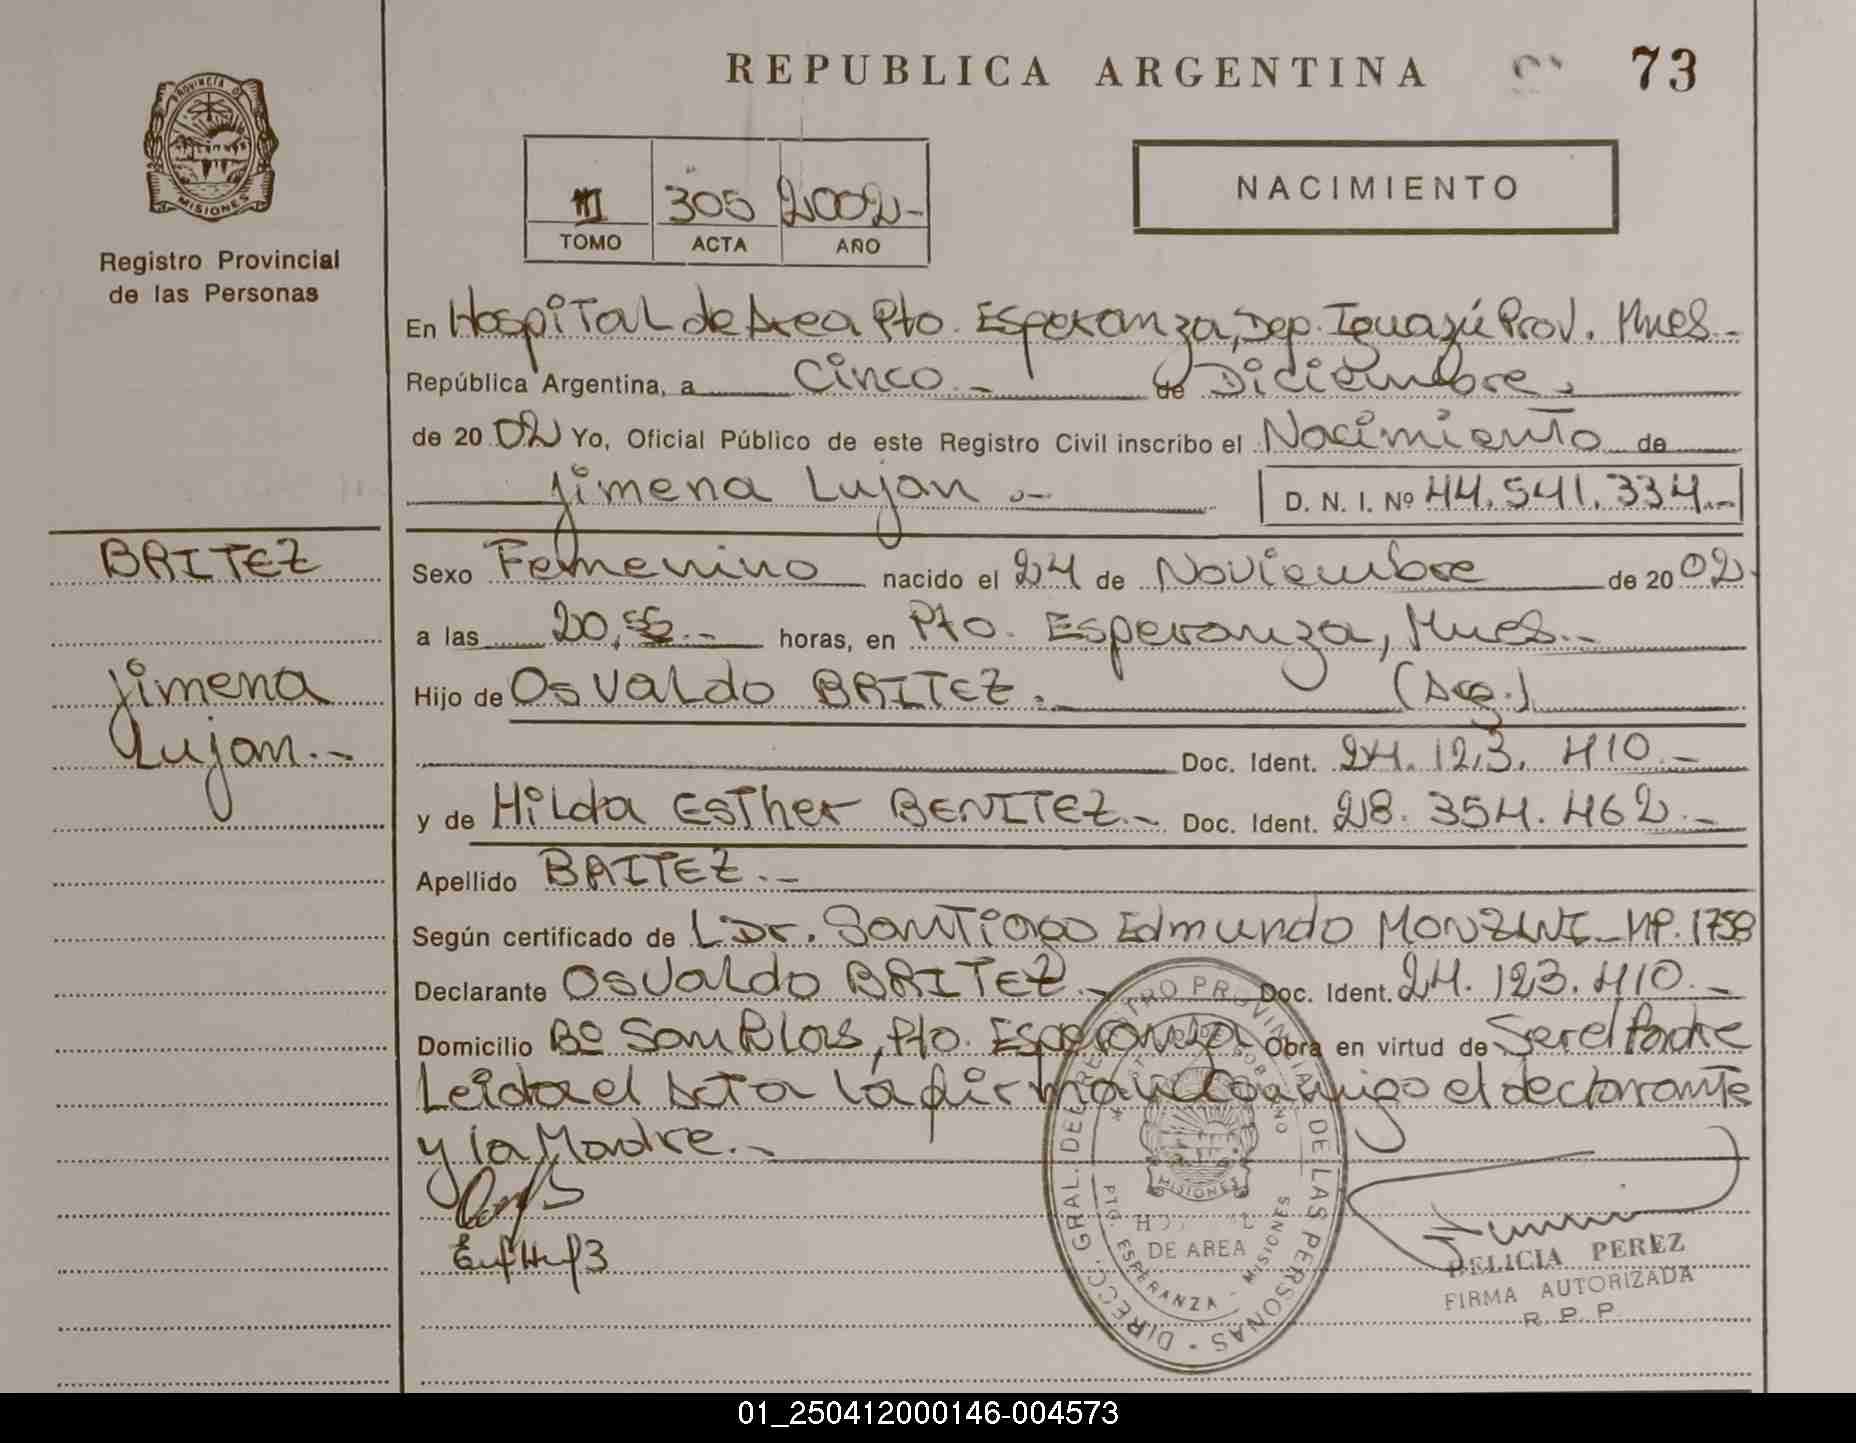 REPUBLICA ARGENTINA
73
PROVINCIA DE
MISIONES
Registro Provincial
de las Personas
III 305 2002-
TOMO ACTA AÑO
NACIMIENTO
En Hospital de Area Pto. Esperanza, Dep. Iguazú Prov. Mnes.-
República Argentina, a Cinco.- de Diciembre.
de 2002 Yo, Oficial Público de este Registro Civil inscribo el Nacimiento de
Jimena Lujan.-
D. N. I. Nº 44.541.334.-
BRITEZ
Jimena
Lujan.-
Sexo Femenino nacido el 24 de Noviembre de 2002.
a las 20, horas, en Pto. Esperanza, Mnes.-
Hijo de Osvaldo BRITEZ. (Arg.)
Doc. Ident. 24.123.410.-
y de Hilda Esther BENITEZ.- Doc. Ident. 28.354.462.-
Apellido BRITEZ.-
Según certificado de Dr. Santiago Edmundo MP. 1758
Declarante Osvaldo BRITEZ.- Doc. Ident. 24.123.410.-
Domicilio Bº San Blas, Pto. Esperanza Obra en virtud de Ser el Padre
Leida el Acta la firman Conmigo el declarante
y la Madre.-
DIRECC. GRAL. DEL REGISTRO PROVINCIAL DE LAS PERSONAS
MISIONES
DE AREA
PTO. ESPERANZA - MISIONES
DELICIA PEREZ
FIRMA AUTORIZADA
R. P. P.
01_250412000146-004573